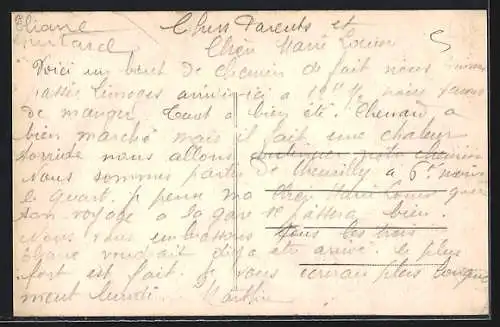 Eliane
Chers Parents et
Chère Marie Louise
Voici un bout de chemin de fait nous
passé Limoges ici a 10h ½ nous
de manger. Tout a bien été. Chenard a
bien marché mais il fait une chaleur
torride nous allons chemin
Nous sommes partis de a 6h moins
le quart. je pense ma Chère Marie Louise que
ton voyage a la gare se passera bien.
Nous vous embrassons tous les trois
Eliane voudrait déja etre arrivé. le plus
fort est fait. je vous écrirai plus longue
ment lundi.